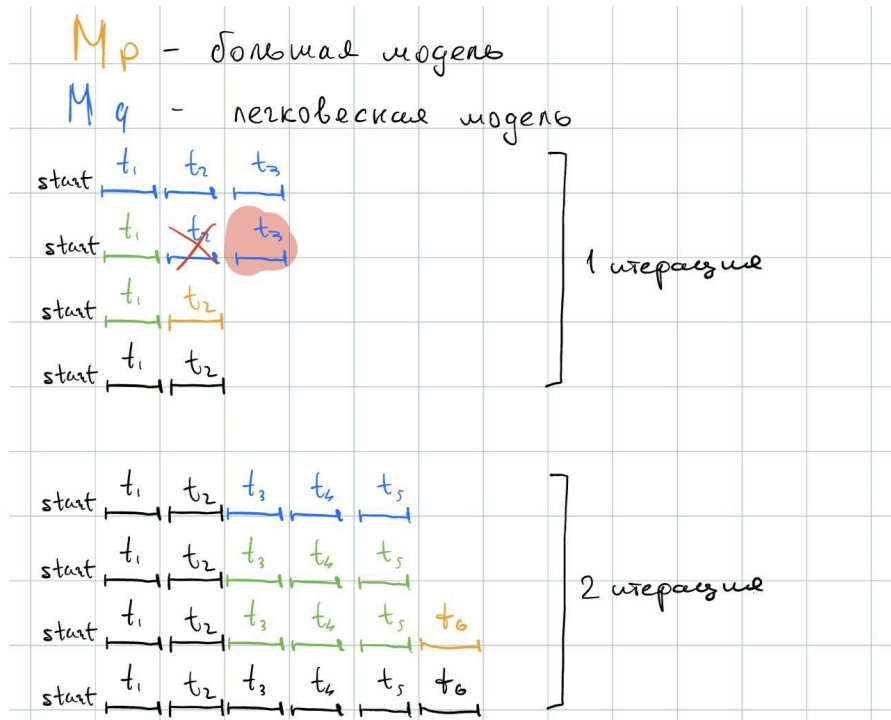 Mp - большая модель
Mq - легковесная модель
start t₁ t₂ t₃
start t₁ t₂ t₃
start t₁ t₂
start t₁ t₂
1 итерация
start t₁ t₂ t₃ t₄ t₅
start t₁ t₂ t₃ t₄ t₅
start t₁ t₂ t₃ t₄ t₅ t₆
start t₁ t₂ t₃ t₄ t₅ t₆
2 итерация